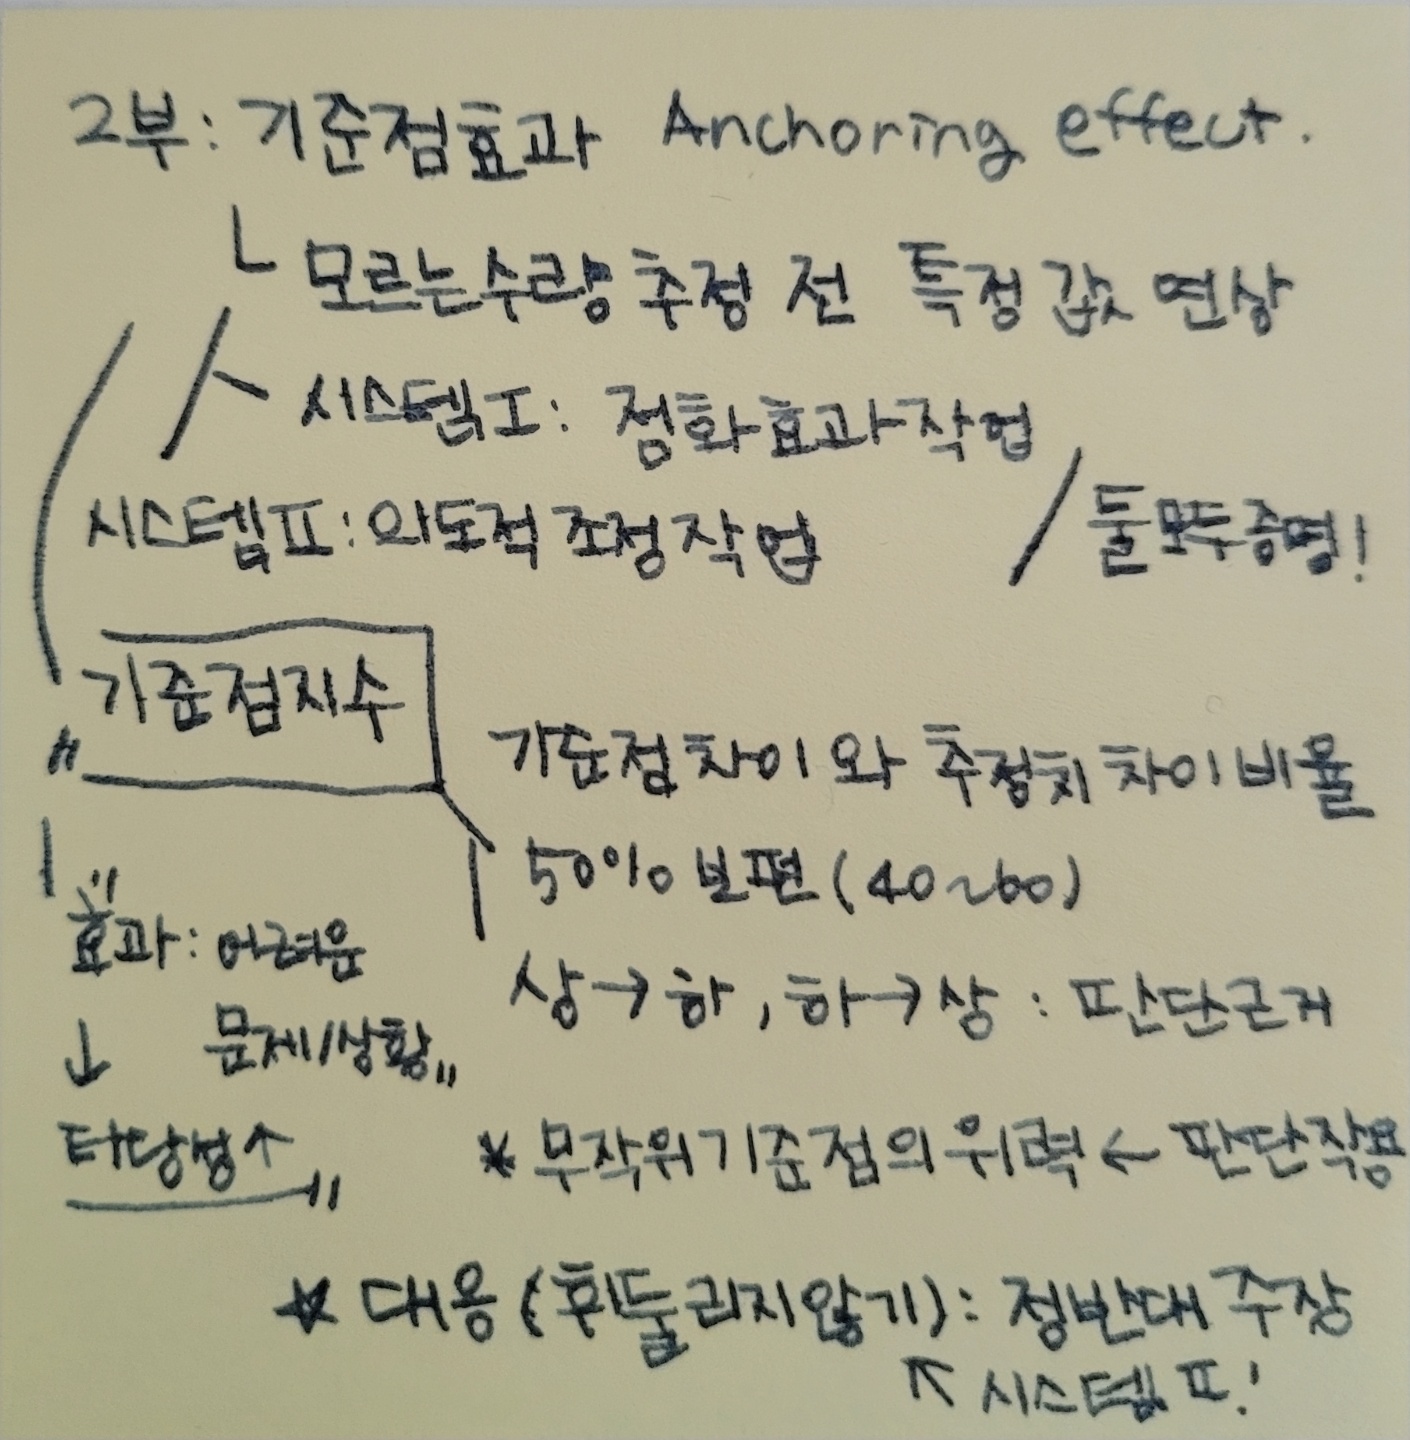 2부: 기준점효과 Anchoring effect.
ㄴ 모르는수량 추정 전 특정 값 연상
시스템I: 점화효과작업
시스템II: 의도적 조정작업 / 둘모두증명!
기준점지수
기준점차이와 추정치차이비율
50% 보편(40~60)
상→하, 하→상 : 판단근거
"효과: 어려운
문제/상황"
↓
타당성↑"
* 무작위기준점의위력 ← 판단작용
☆ 대응(휘둘리지않기): 정반대 주장
↖ 시스템II!